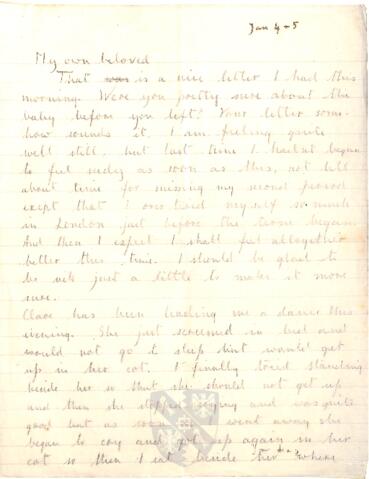 Jan 4-5
My own beloved
That was is a nice letter I had this
morning. Were you pretty sure about the
baby before you left? Your letter some-
how sounds it. I am feeling quite
well still, but last time I hadnt begun
to feel seedy as soon as this, not till
about time for missing my second period
except that I over tired myself so much
in London just before the term began.
And then I expect I shall feel alltogether
better this time. I should be glad to
be sick just a little to make it more
sure.
Clare has been leading me a dance this
evening. She just screamed in bed and
would not go to sleep but would get
up in her cot. I finally tried standing
beside her so that she should not get up
and then she stopped crying and was quite
good but as soon as I went away she
began to cry and got up again in her
cot so then I sat beside her where